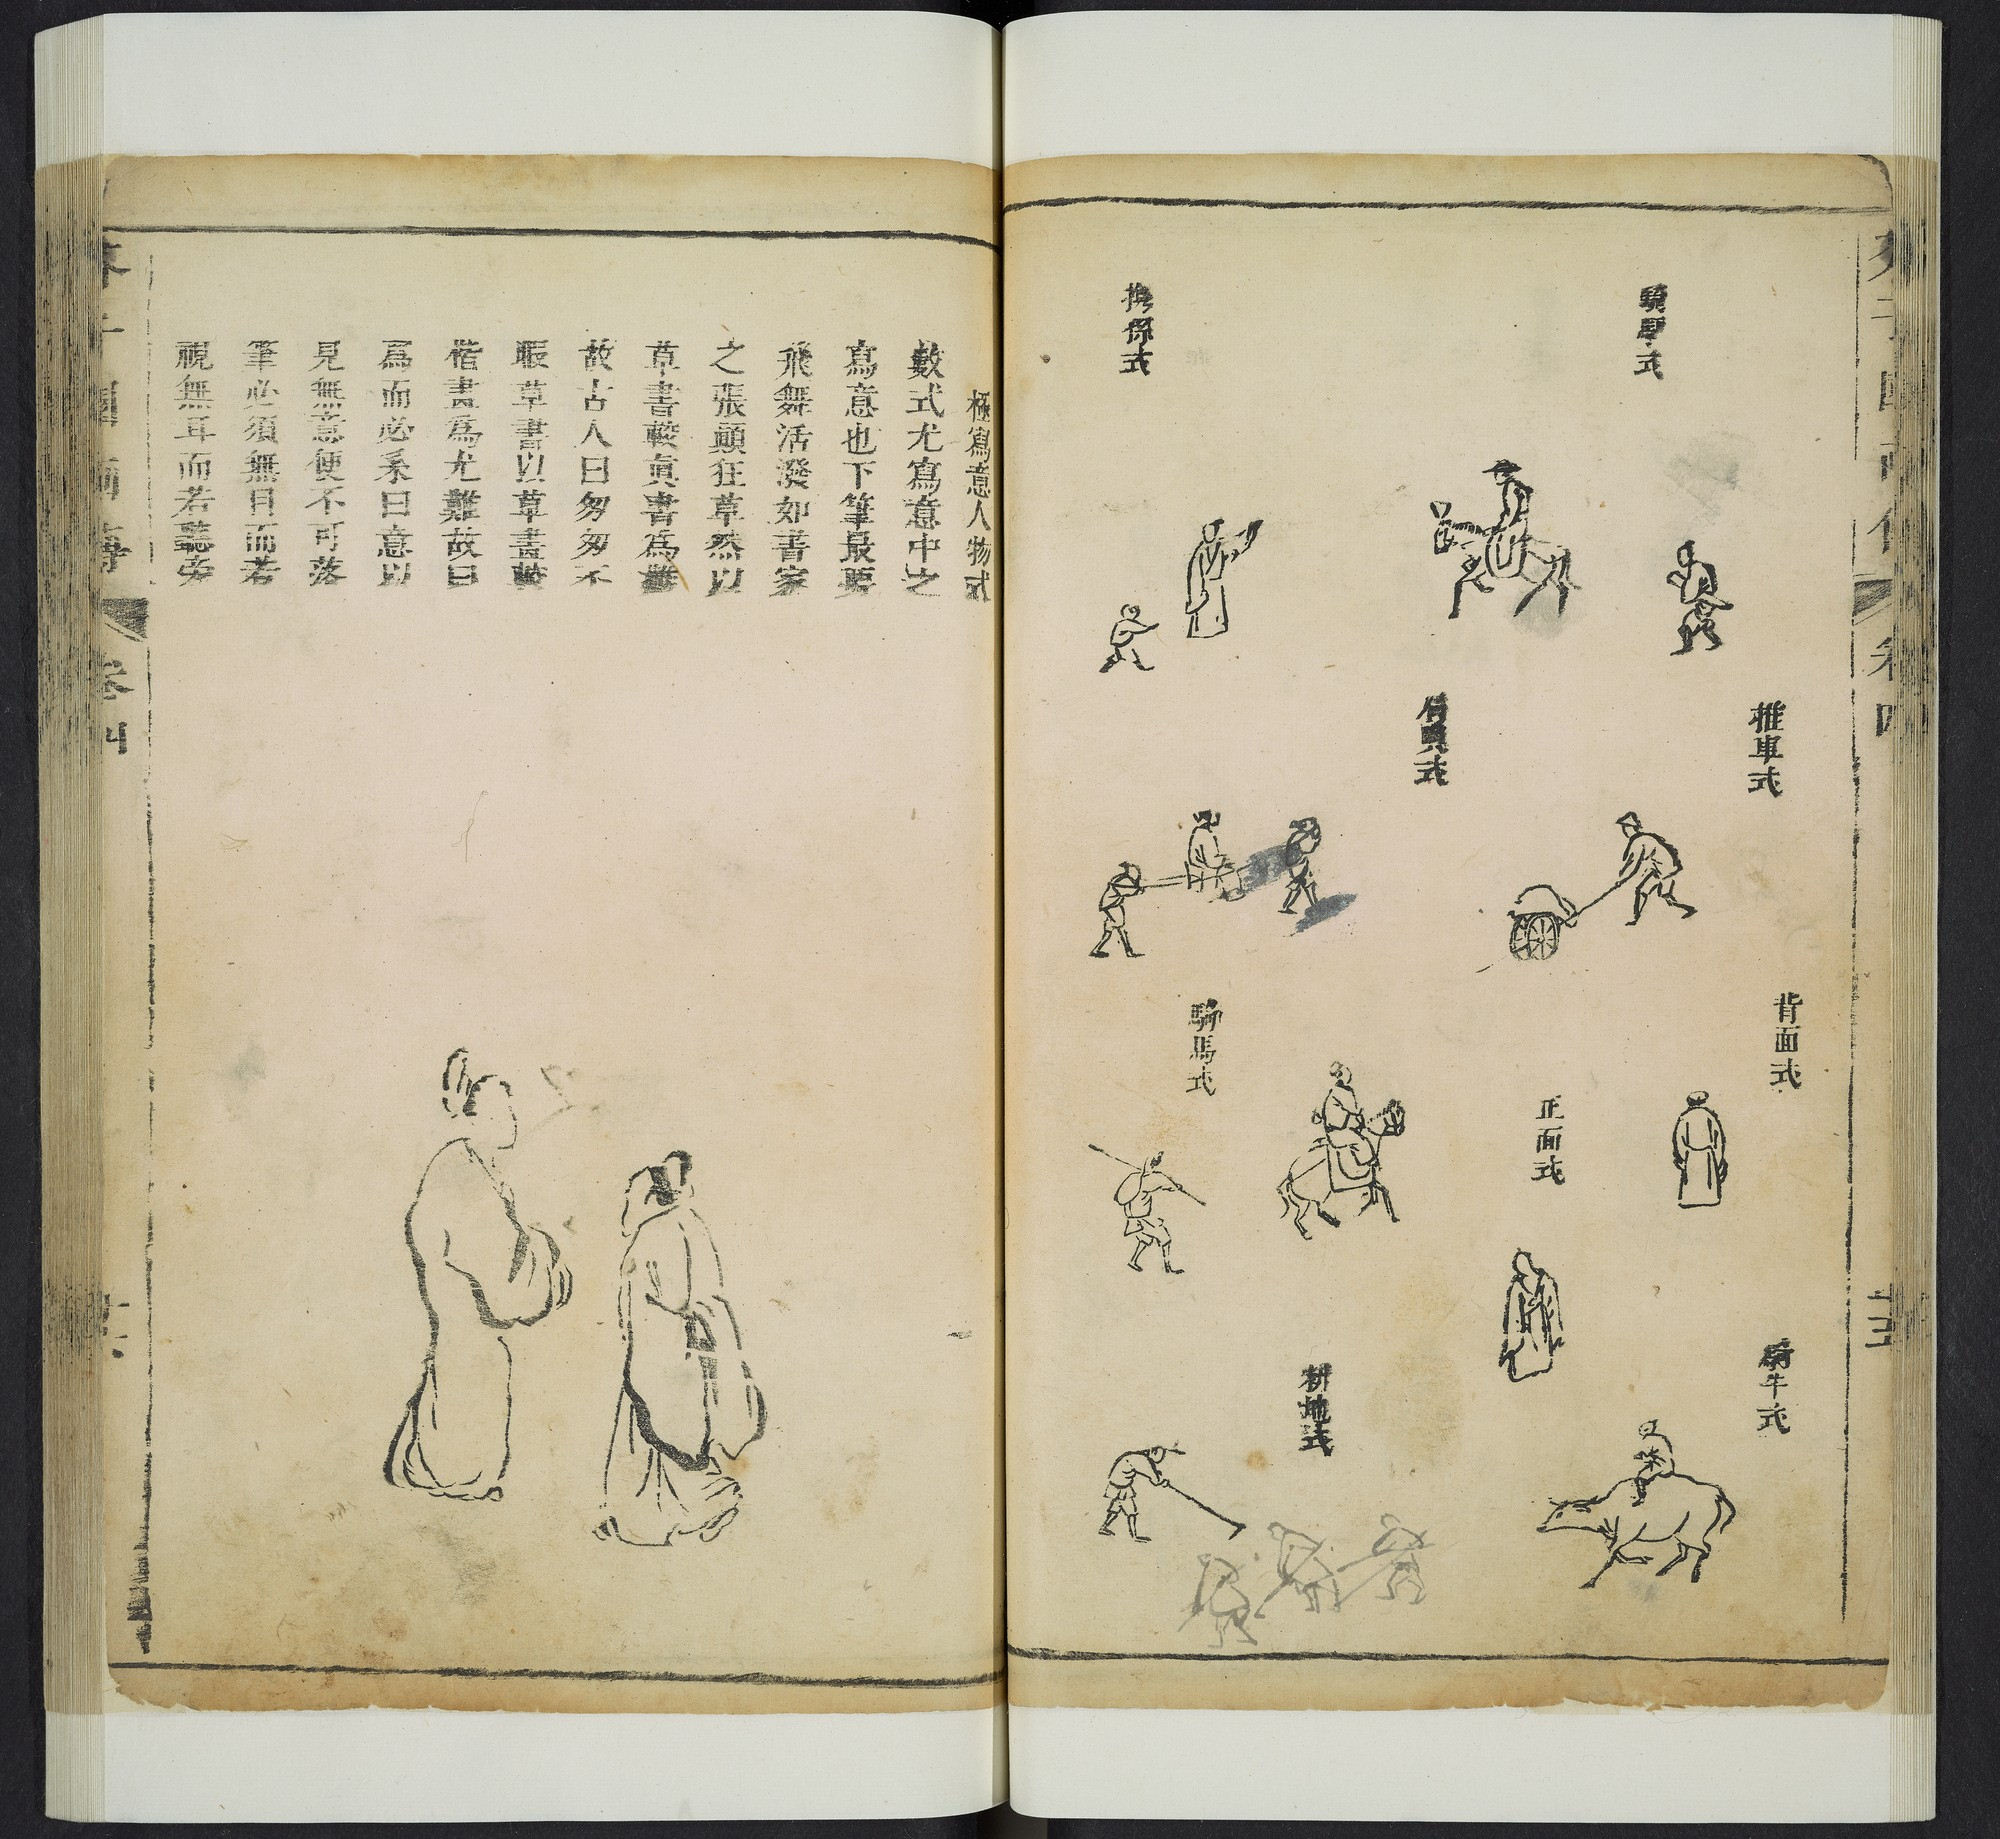 芥子園畫傳 卷四 十五
騎驢式
推車式
背面式
騎牛式
正面式
肩輿式
騎馬式
耕地式
極寫意人物式
數式尤寫意中之
寫意也下筆最要
飛舞活潑如書家
之張顛狂草然以
草書較真書為難
故古人曰匆匆不
暇草書以草畫較
楷畫為尤難故曰
寫而必系曰意以
見無意便不可落
筆必須無目而若
視無耳而若聽旁
芥子園畫傳 卷四 十六